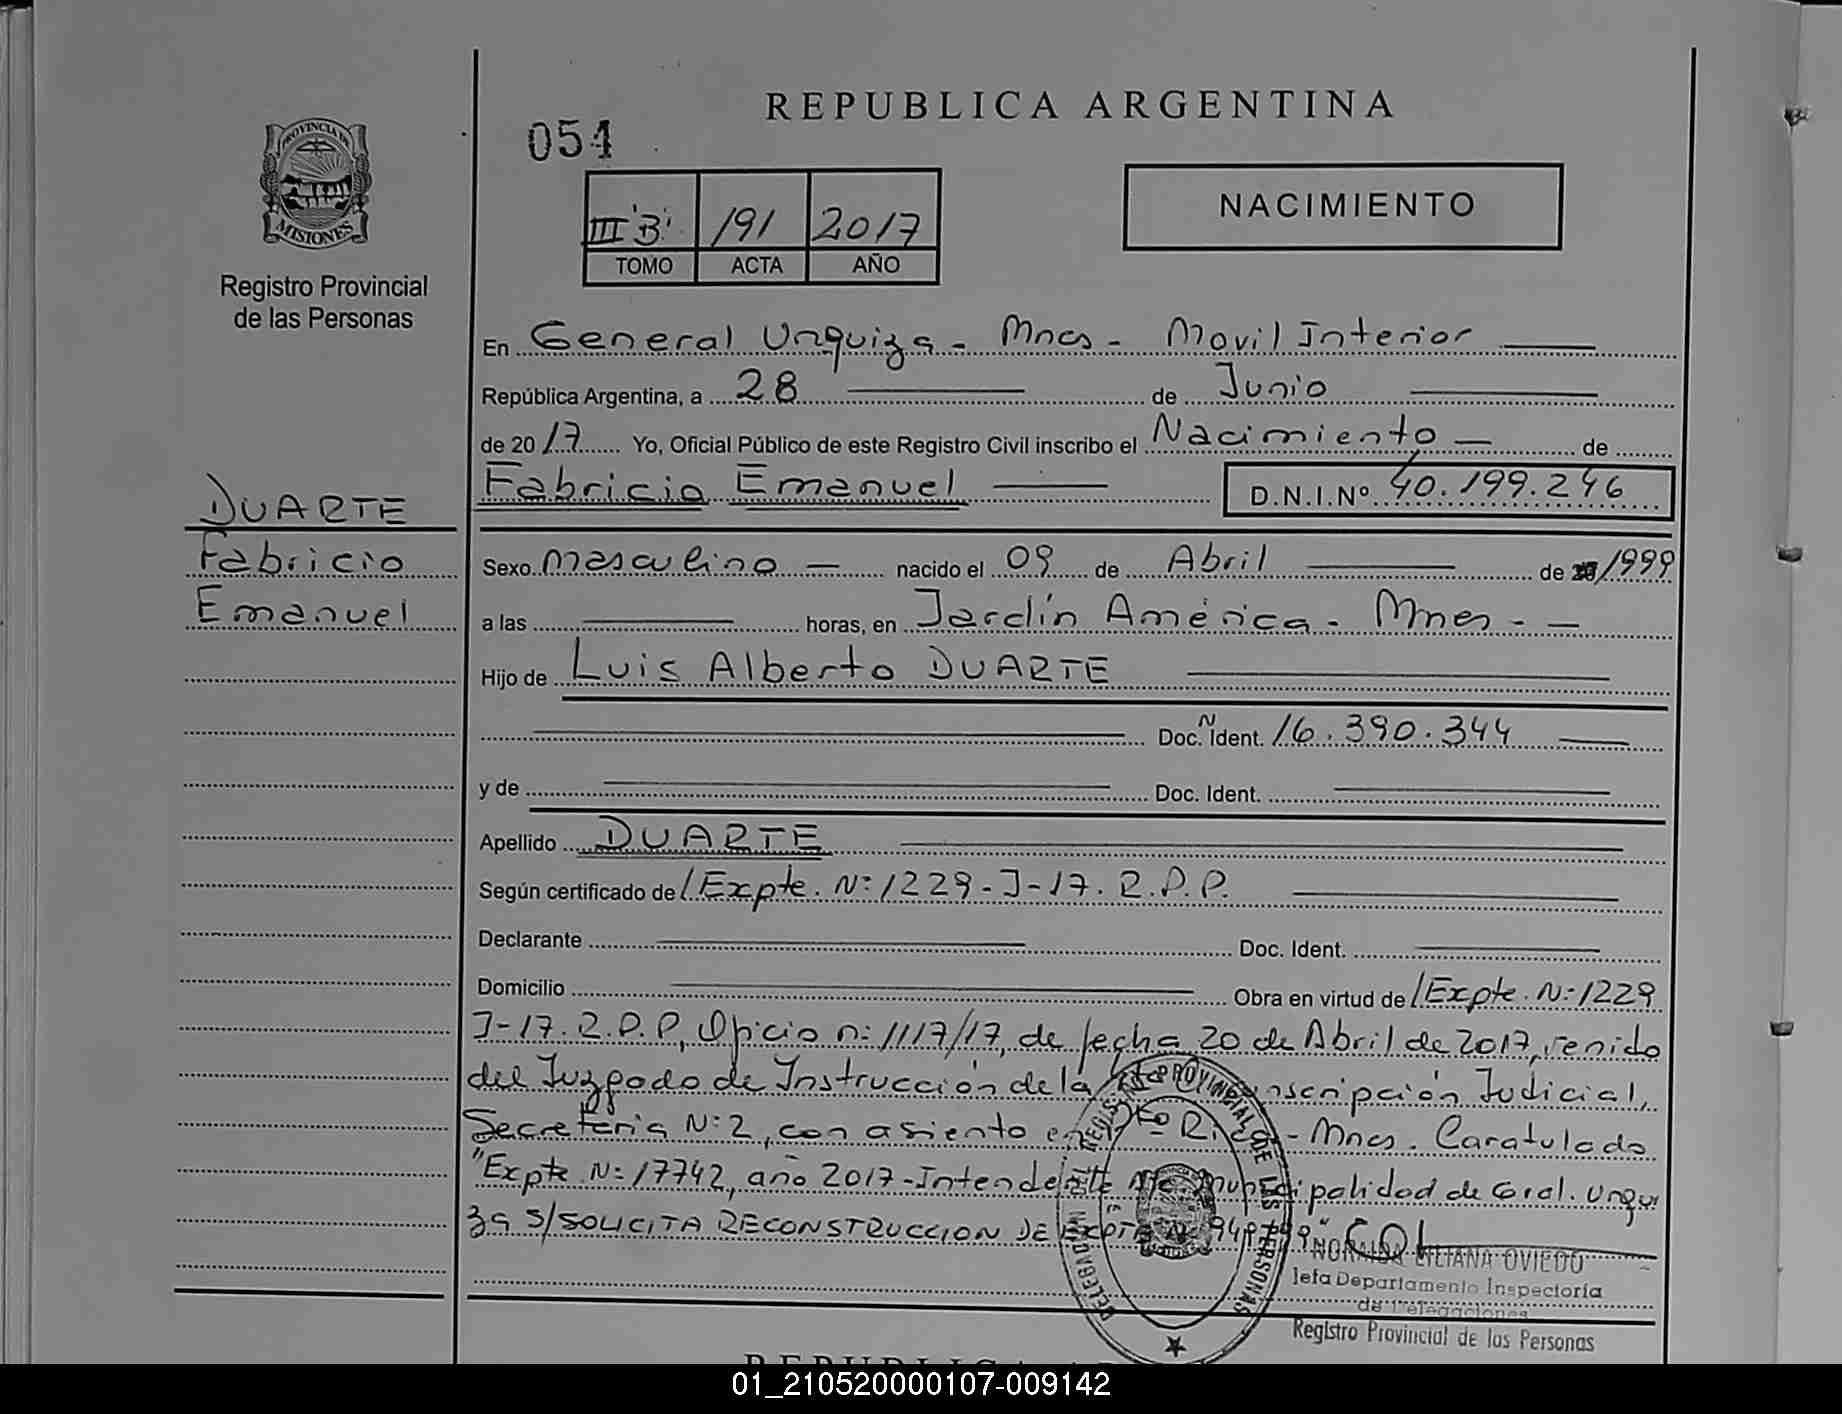 REPUBLICA ARGENTINA
054
PROVINCIA DE
MISIONES
Registro Provincial
de las Personas
III "B" 191 2017
TOMO ACTA AÑO
NACIMIENTO
En General Urquiza - Mnes - Movil Interior
República Argentina, a 28 de Junio
de 2017 Yo, Oficial Público de este Registro Civil inscribo el Nacimiento de
Fabricio Emanuel D.N.I.Nº 40.199.246
DUARTE
Fabricio
Emanuel
Sexo masculino nacido el 09 de Abril de 1999
a las horas, en Jardín América - Mnes -
Hijo de Luis Alberto DUARTE
Doc. Ident. Nº 16.390.344
y de Doc. Ident.
Apellido DUARTE
Según certificado de /Expte. Nº 1229-J-17. R.P.P.
Declarante Doc. Ident.
Domicilio Obra en virtud de /Expte. Nº 1229
J-17. R.P.P, Oficio nº 1117/17, de fecha 20 de Abril de 2017, venido
del Juzgado de Instrucción de la Judicial,
Secretaria Nº 2, con asiento en Pto Rico - Mnes. Caratulado
"Expte Nº 17742, año 2017 - Intendente Municipalidad de Gral. Urqui
za S/SOLICITA RECONSTRUCCION DE EXPTE
DELEGACION REGISTRO PROVINCIAL DE LAS PERSONAS
NORAIDA LILIANA OVIEDO
Jefa Departamento Inspectoría
de Delegaciones
Registro Provincial de las Personas
01_210520000107-009142